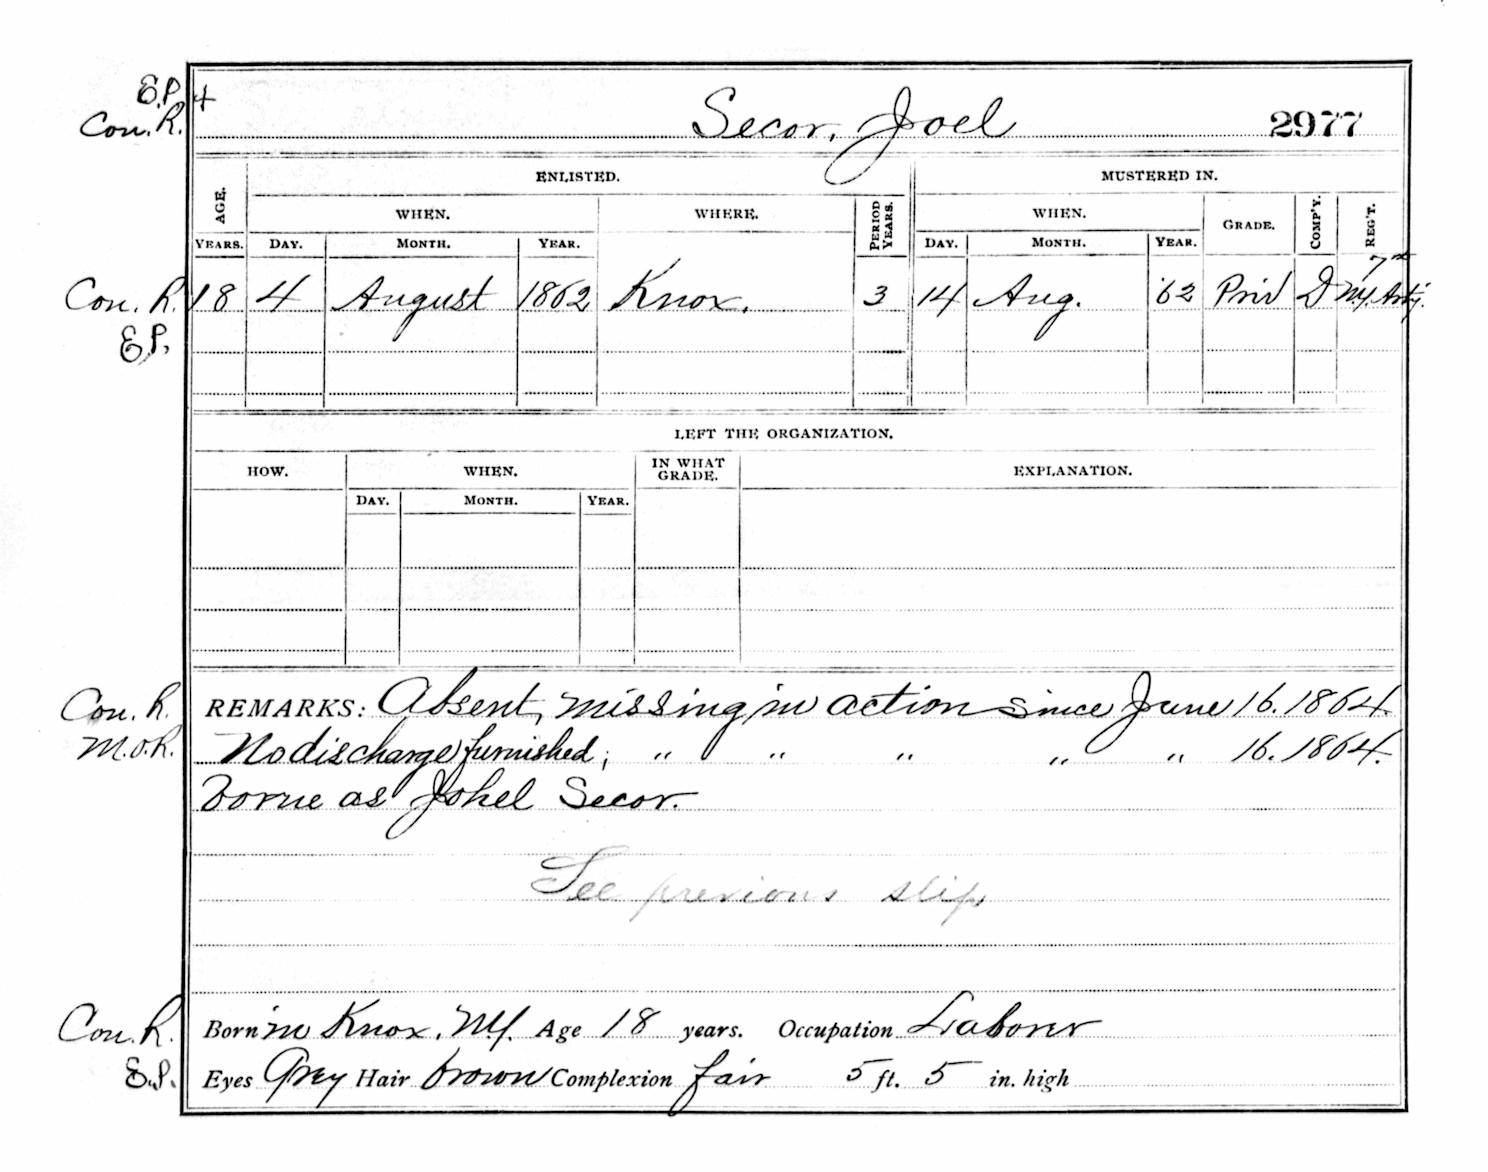 E.P. +
Con. R. Secor, Joel 2977
ENLISTED. MUSTERED IN.
AGE. WHEN. WHERE. PERIOD YEARS. WHEN. GRADE. COMP'Y. REG'T.
YEARS. DAY. MONTH. YEAR. DAY. MONTH. YEAR.
7th
Con. R. 18 4 August 1862 Knox. 3 14 Aug. '62 Priv D N.Y. Arty.
E.P.
LEFT THE ORGANIZATION.
HOW. WHEN. IN WHAT GRADE. EXPLANATION.
DAY. MONTH. YEAR.
Con. R. REMARKS: Absent, missing in action since June 16. 1864.
M.O.R. No discharge furnished; " " " " " 16. 1864.
Borne as Johel Secor.
See previous slip
Con. R. Born in Knox, N.Y. Age 18 years. Occupation Laborer
E.P. Eyes Grey Hair brown Complexion fair 5 ft. 5 in. high